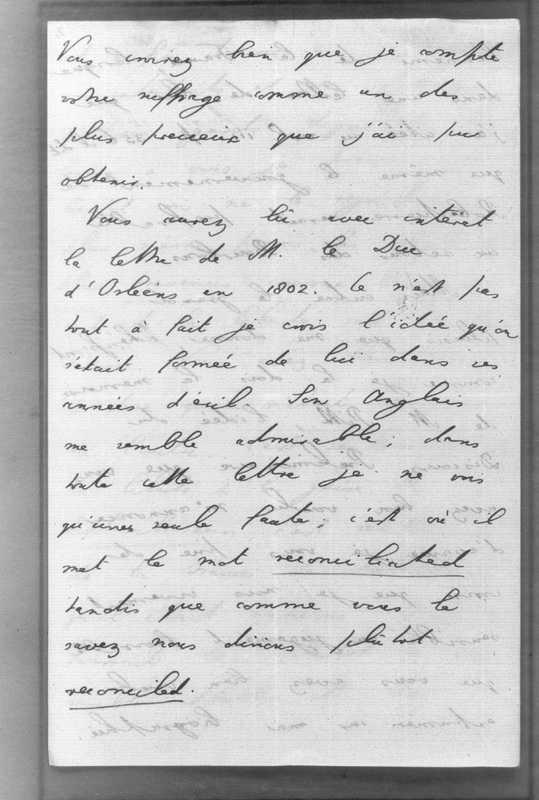 Vous croirez bien que je compte
votre suffrage comme un des
plus precieux que j'ai pu
obtenir.
Vous aurez lû avec intérêt
la lettre de M. le Duc
d'Orléans en 1802. Ce n'est pas
tout à fait je crois l'idée qu'on
s'était formée de lui dans ces
années d'éxil. Son Anglais
me semble admirable; dans
toute cette lettre je ne vois
qu'une seule faute; c'est où il
met le mot reconciliated
tandis que comme vous le
savez nous dirions plûtot
reconciled.